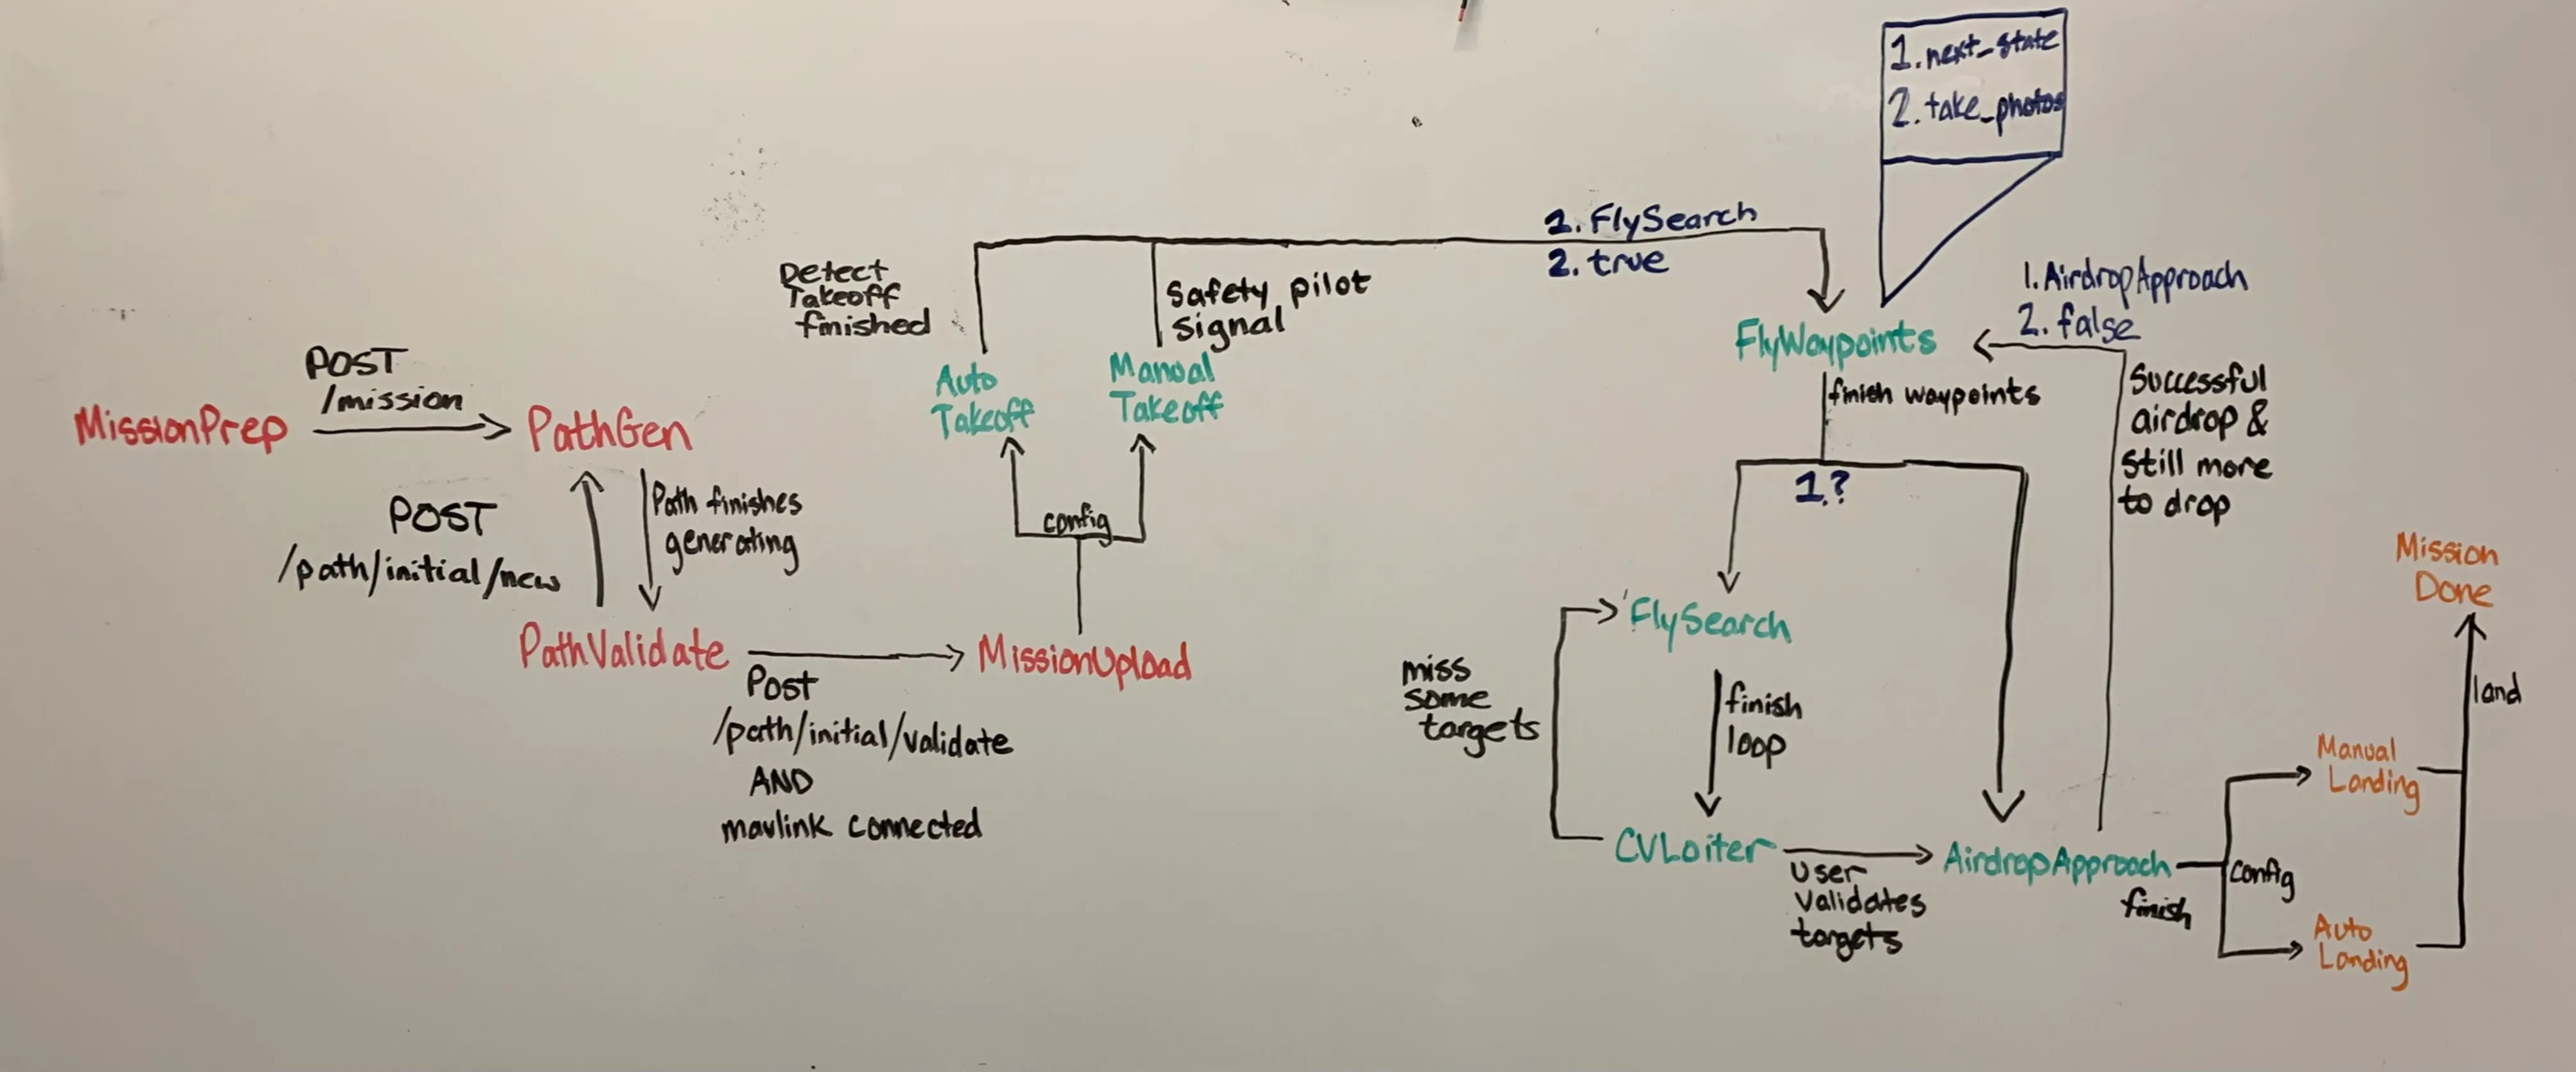 1. next_state
2. take_photos
1. FlySearch
2. true
Detect
Takeoff
finished
Safety pilot
signal
1. AirdropApproach
2. false
FlyWaypoints
finish waypoints
Successful
airdrop &
still more
to drop
POST
/mission
MissionPrep
PathGen
Auto
Takeoff
Manual
Takeoff
POST
/path/initial/new
Path finishes
generating
config
1.?
PathValidate
MissionUpload
Post
/path/initial/validate
AND
mavlink connected
FlySearch
miss
some
targets
finish
loop
CVLoiter
User
validates
targets
AirdropApproach
finish
config
Manual
Landing
Auto
Landing
land
Mission
Done